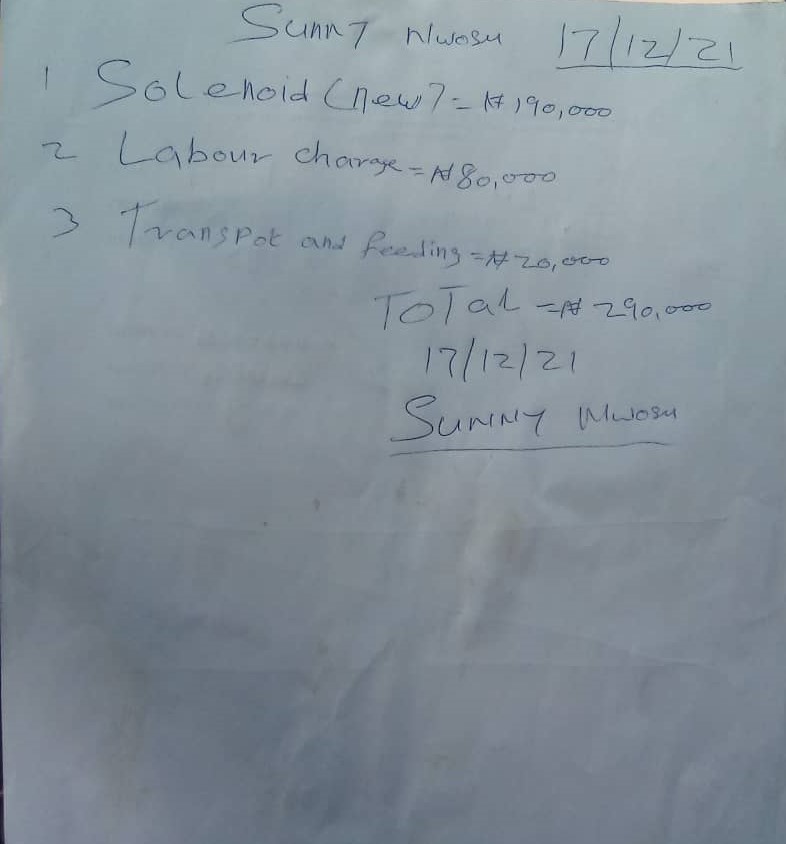 Sunny Nwosu 17/12/21
1 Solenoid (new) = ₦190,000
2 Labour charge = ₦80,000
3 Transpot and feeding = ₦20,000
Total = ₦290,000
17/12/21
Sunny Nwosu